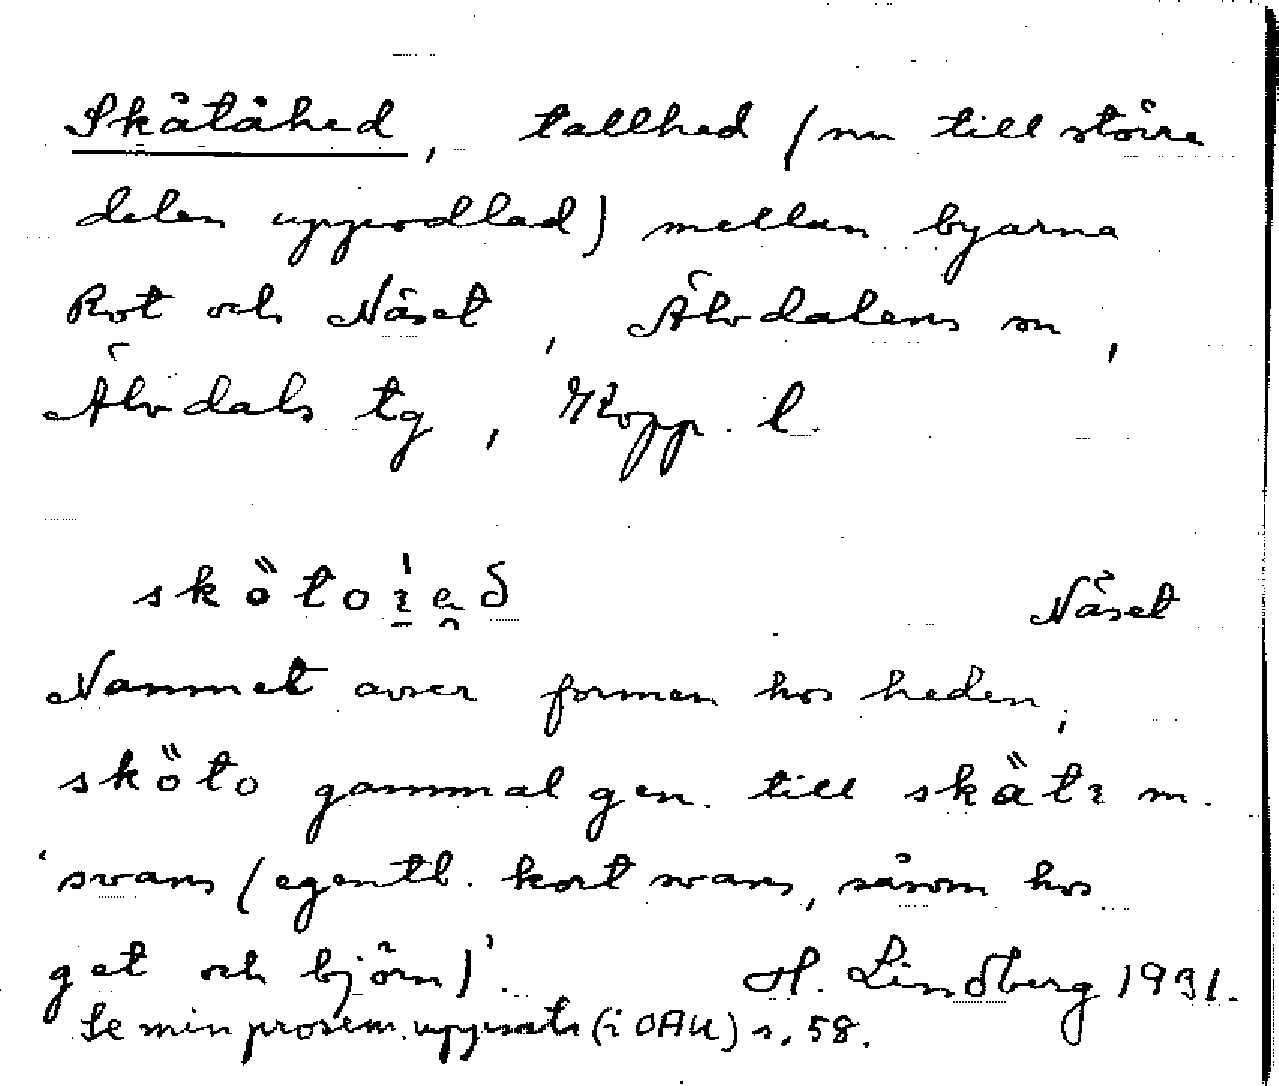 Skåtåhed, tallhed (nu till större
delen uppodlad) mellan byarna
Rot och Näset, Älvdalens sn,
Älvdals tg, Kopp. l.
Näset
Namnet avser formen hos heden,
sköto gammal gen. till skäti m.
'svans (egentl. kort svans, såsom hos
get och björn)'. H. Lindberg 1931.
Se min prosem. uppsats (i OAU) s. 58.